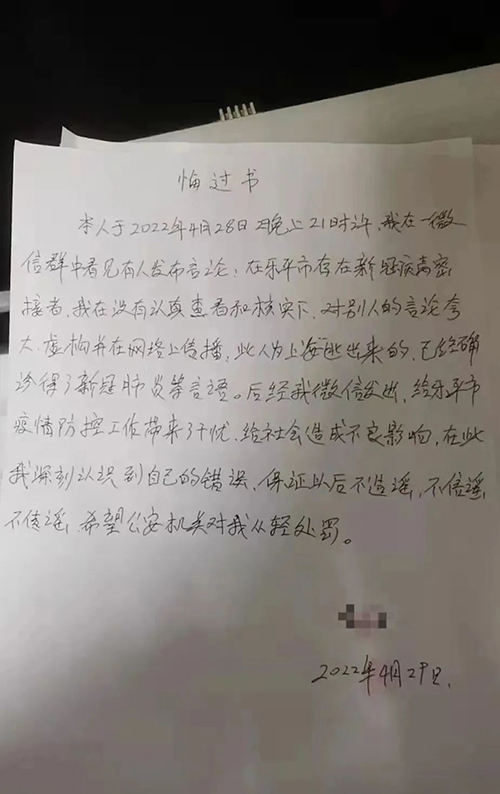 悔过书
本人于2022年4月28日晚上21时许,我在一微
信群中看见有人发布言论:在乐平市存在新冠病毒密
接者,我在没有认真查看和核实下,对别人的言论夸
大.虚构并在网络上传播,此人为上海"逃出来的,已经确
诊得了新冠肺炎等言语。后经我微信发出,给乐平市
疫情防控工作带来了干忧.给社会造成不良影响,在此
我深刻认识到自己的错误,保证以后不造谣,不信谣
不传谣.希望公安机关对我从轻处罚。
2022年4月29日.